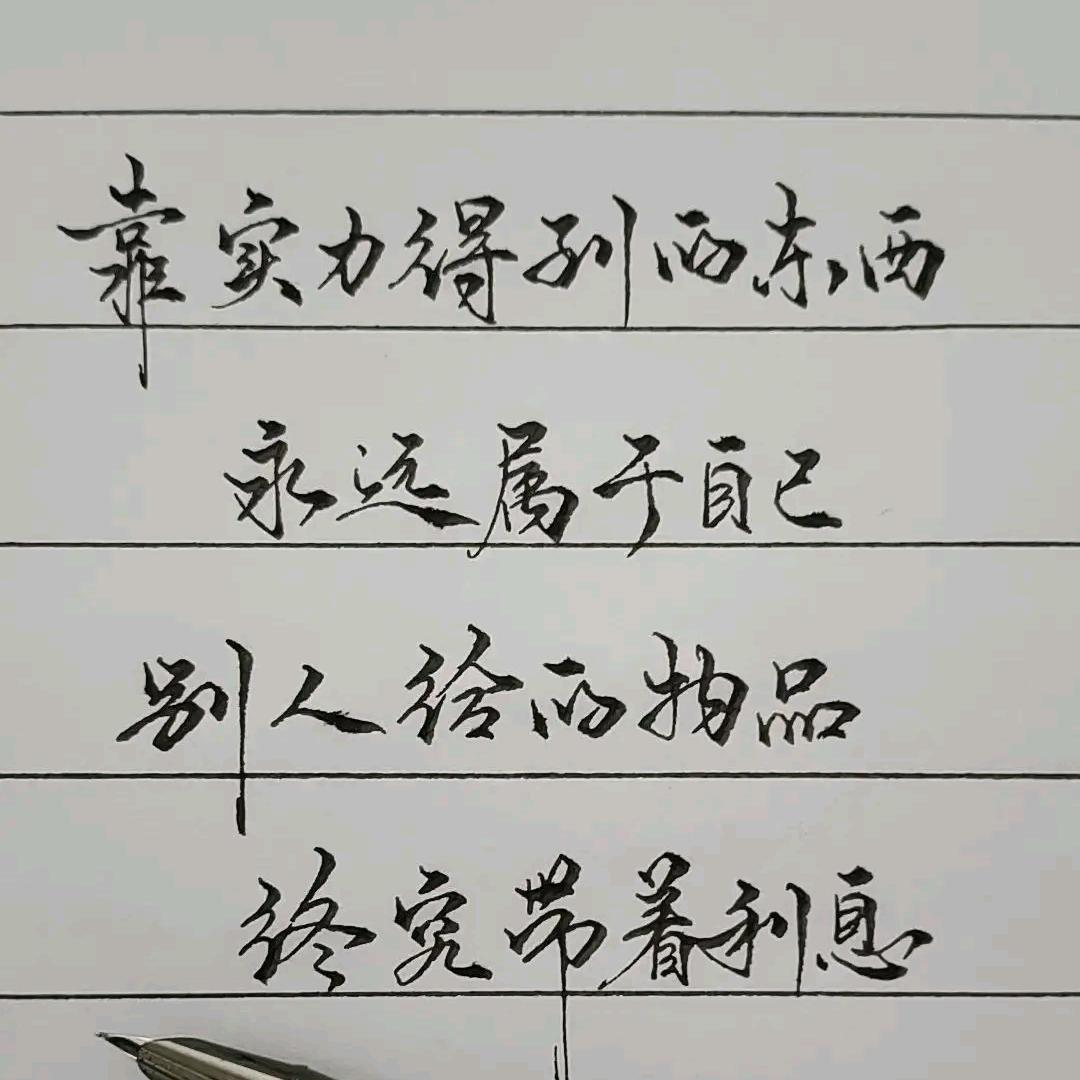 靠实力得到的东西
永远属于自己
别人给的物品
终究带着利息